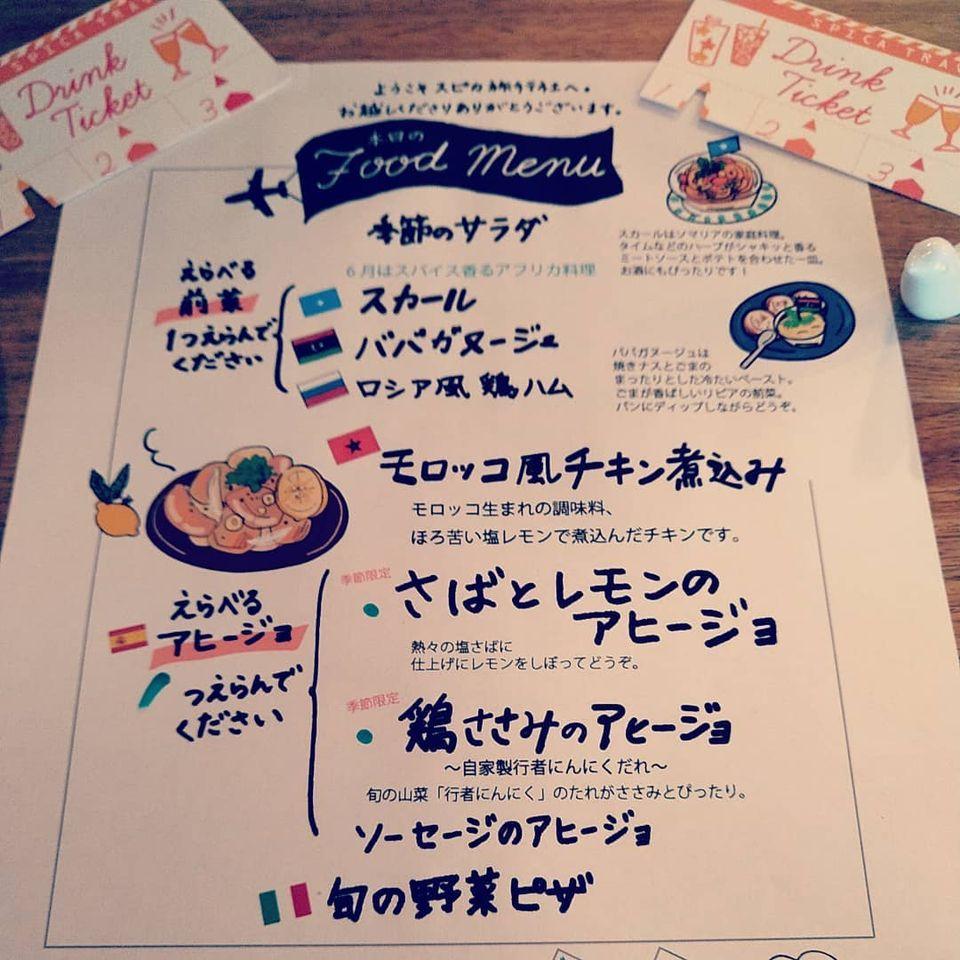 SPICA TRAV
Drink
Ticket
2
3
SPICA TRAV
Drink
Ticket
1
2
3
ようこそ スピカ旅行行王へ。
お越しくださりありがとうございます。
本日の
Food Menu
季節のサラダ
6月はスパイス香るアフリカ料理
えらべる
前菜
1つえらんで
ください
スカール
ババガヌージュ
ロシア風 鶏ハム
スカールはソマリアの家庭料理。
タイムなどのハーブがシャキッと香る
ミートソースとポテトを合わせた一皿。
お酒にもぴったりです！
ババガヌージュは
焼きナスとごまの
まったりとした冷たいペースト。
ごまが香ばしいリビアの前菜。
パンにディップしながらどうぞ。
モロッコ風チキン煮込み
モロッコ生まれの調味料、
ほろ苦い塩レモンで煮込んだチキンです。
えらべる
アヒージョ
1つえらんで
ください
季節限定
さばとレモンの
アヒージョ
熱々の塩さばに
仕上げにレモンをしぼってどうぞ。
季節限定
鶏ささみのアヒージョ
～自家製行者にんにくだれ～
旬の山菜「行者にんにく」のたれがささみとぴったり。
ソーセージのアヒージョ
旬の野菜ピザ